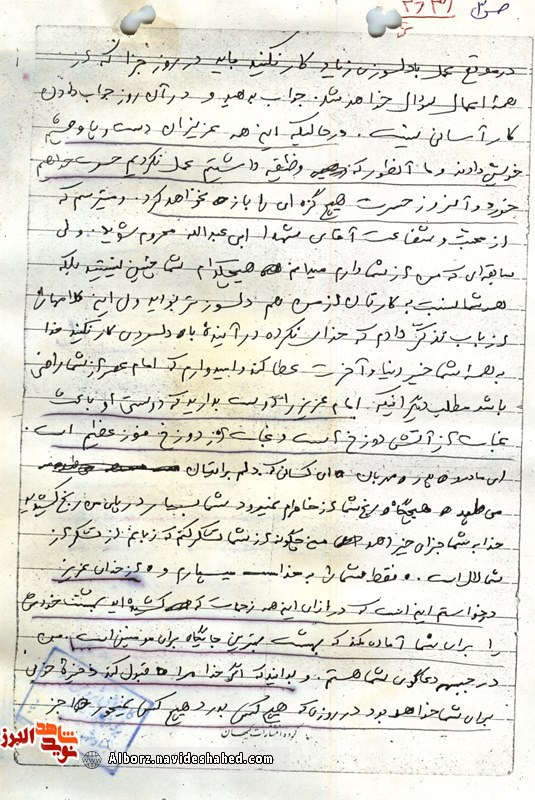 ص ۳
در موقع عمل با دلسوزی زیاد کار نکنید باید در روز جزا که از
همه اعمال سؤال خواهد شد. جواب بدهید و در آن روز جواب دادن
کار آسانی نیست. در حالیکه این همه عزیزان دست و پا و هستی
خویش دادند و ما آنطور که وظیفه داشتیم عمل نکردیم حسرت خواهیم
خورد و آنروز حسرت هیچ گره ای را باز نخواهد کرد. و میترسم که
از محبت و شفاعت آقای شهدا ابی عبدالله محروم شوید. ولی
سابقه ای که من از شما دارم میدانم هیچکدام شما چنین نیستید بلکه
همه شما نسبت به کارتان از من هم دلسوزتر بوده اید ولی این کلامها را
از باب تذکر دادم که خدای نکرده در آینده با دلسردی کار نکنید خدا
به همه شما خیر دنیا و آخرت عطا کند و امیدوارم که امام عصر از شما راضی
باشد مطلب دیگر اینکه امام عزیز را دوست بدارید که دوستی او باعث
نجات از آتش دوزخ است و نجات از دوزخ فوز عظیم است.
ای مادر و پدر مهربان ای کسانی که دلم برایتان
می طپد هیچگاه رنج شما از خاطرم نمیرود شما بسیار در پای من رنج کشیده اید
خدا به شما جزای خیر دهد من چگونه از شما تشکر کنم که زبانم از تشکر از
شما لال است. و فقط شما را به خدا می سپارم و از خدای عزیز
درخواستم این است که در ازای این همه زحمات که کشیده اید بهشت خودش
را برای شما آماده کند که بهشت بهترین جایگاه برای مومنین است. من
در جبهه دعاگوی شما هستم. و بدانید که اگر خدا مرا قبول کند ذخیره خوبی
برای شما خواهد بود در روزی که هیچ کس بدرد هیچ کس نمیخورد جز
شاهد نوید البرز
Alborz.navideshahed.com